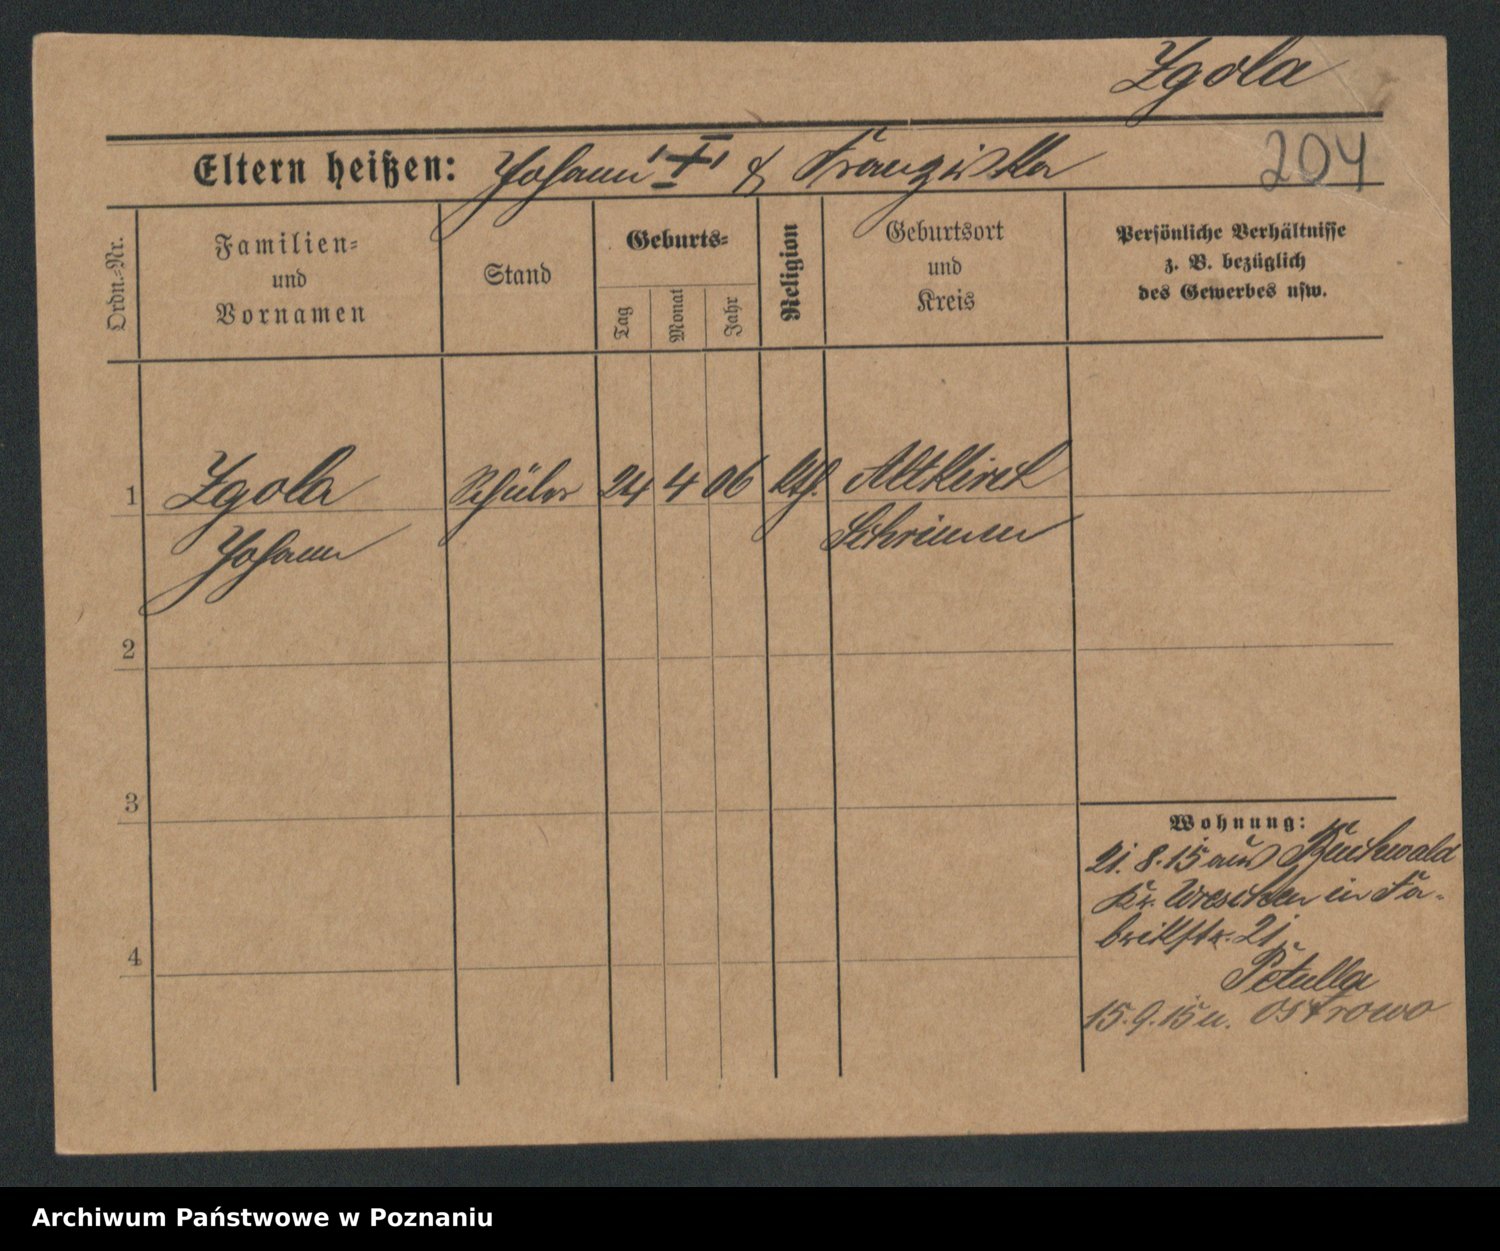 Zgola
204
Eltern heißen: Johann + & Franziska
Ordn.-Nr.
Familien-
und
Vornamen
Stand
Geburts-
Tag
Monat
Jahr
Religion
Geburtsort
und
Kreis
Persönliche Verhältnisse
z. B. bezüglich
des Gewerbes usw.
1 Zgola Schüler 24 4 06 kth. Altkirch
Johann Schrimm
2
3
4
Wohnung:
21. 8. 15 aus Buchwald
Kr. Wreschen in Fa-
brikstr. 21
Petulla
15. 9. 15 n. Ostrowo
Archiwum Państwowe w Poznaniu